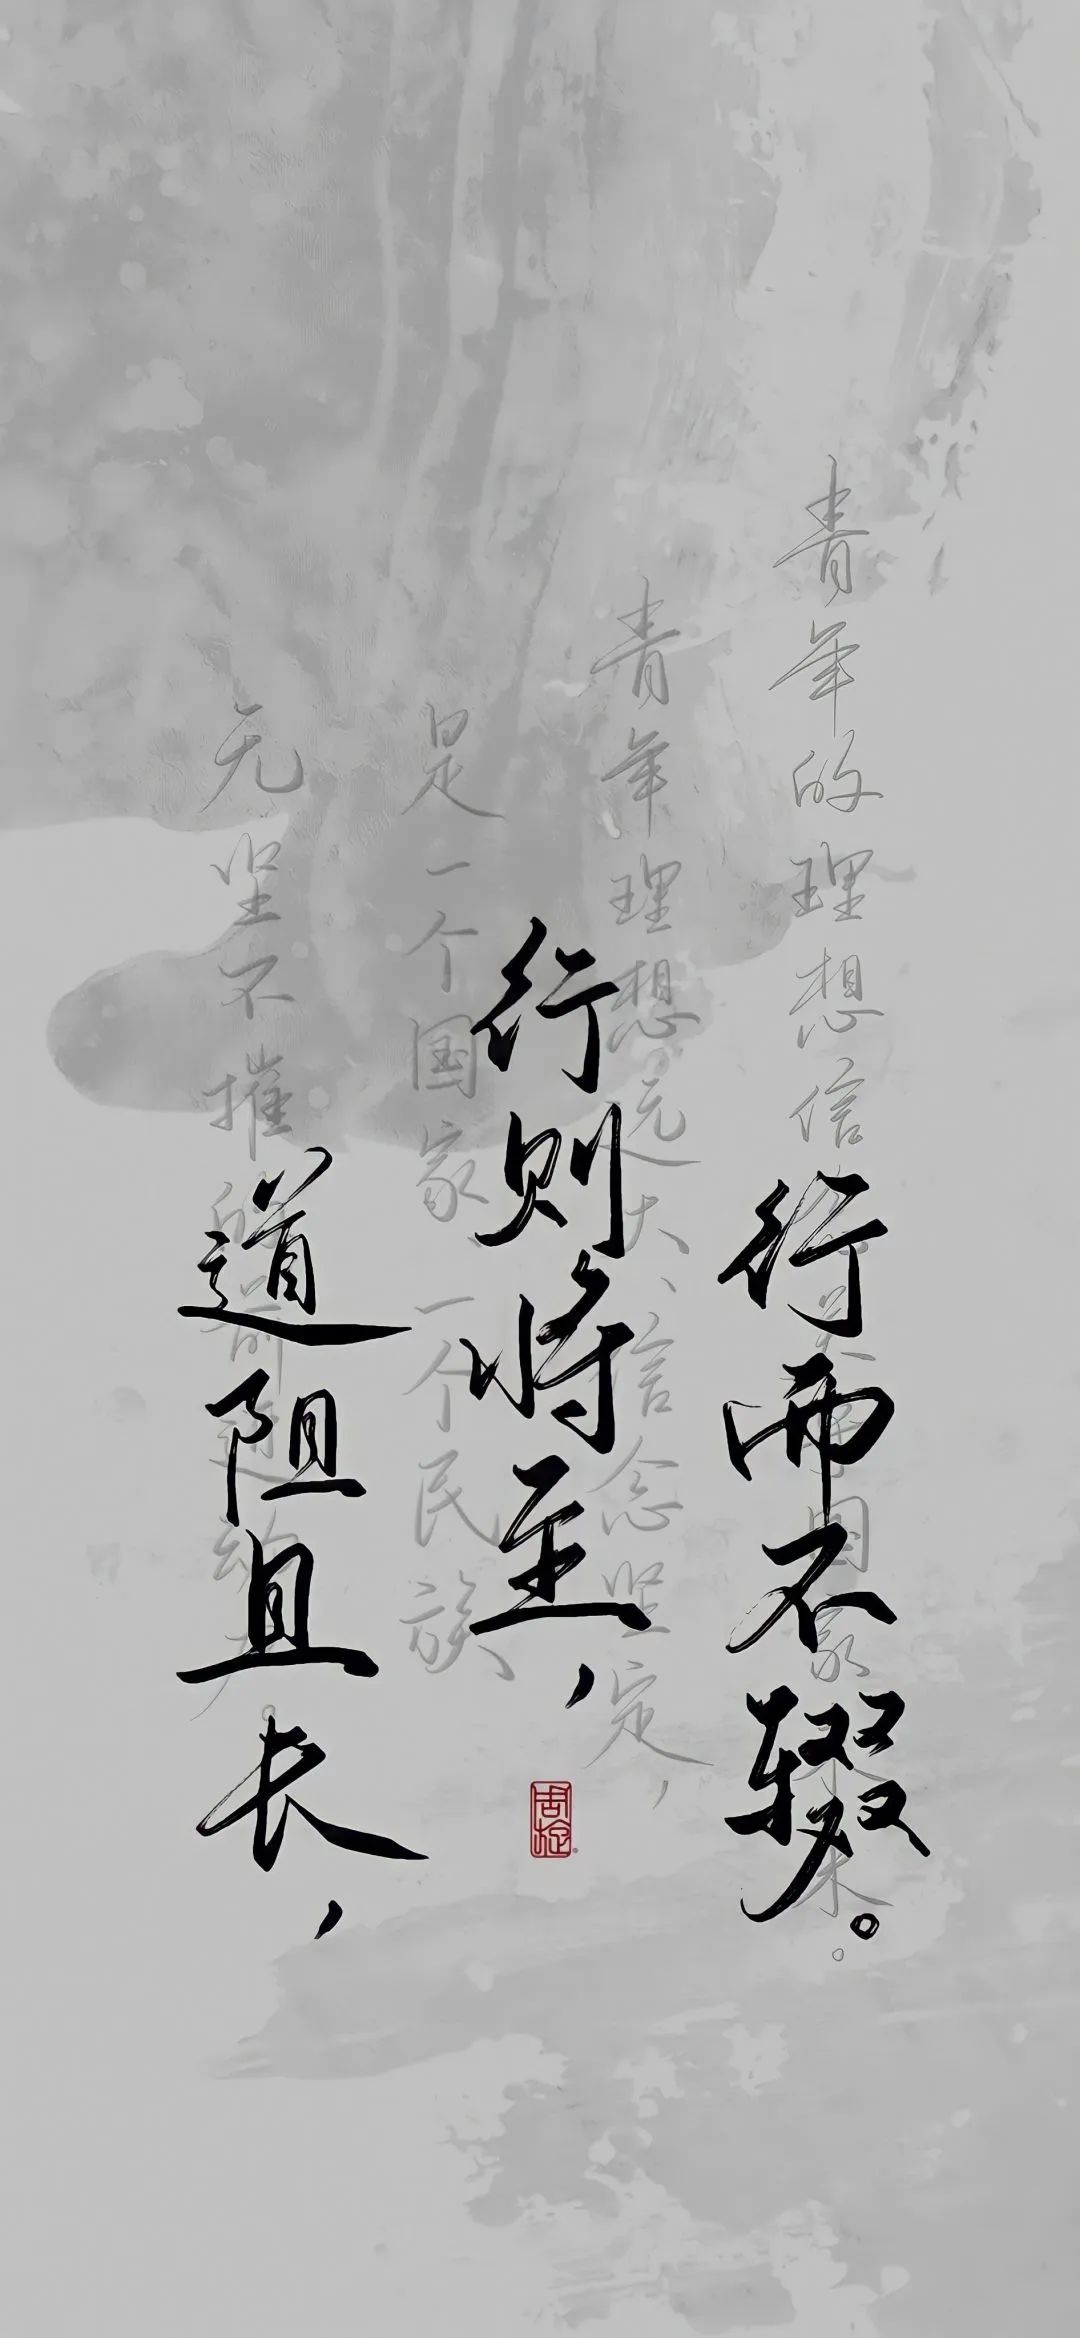 道阻且长，
行则将至，
行而不辍。
青年的理想信念关乎国家未来。
青年理想远大、信念坚定，
是一个国家、一个民族
无坚不摧的前进动力